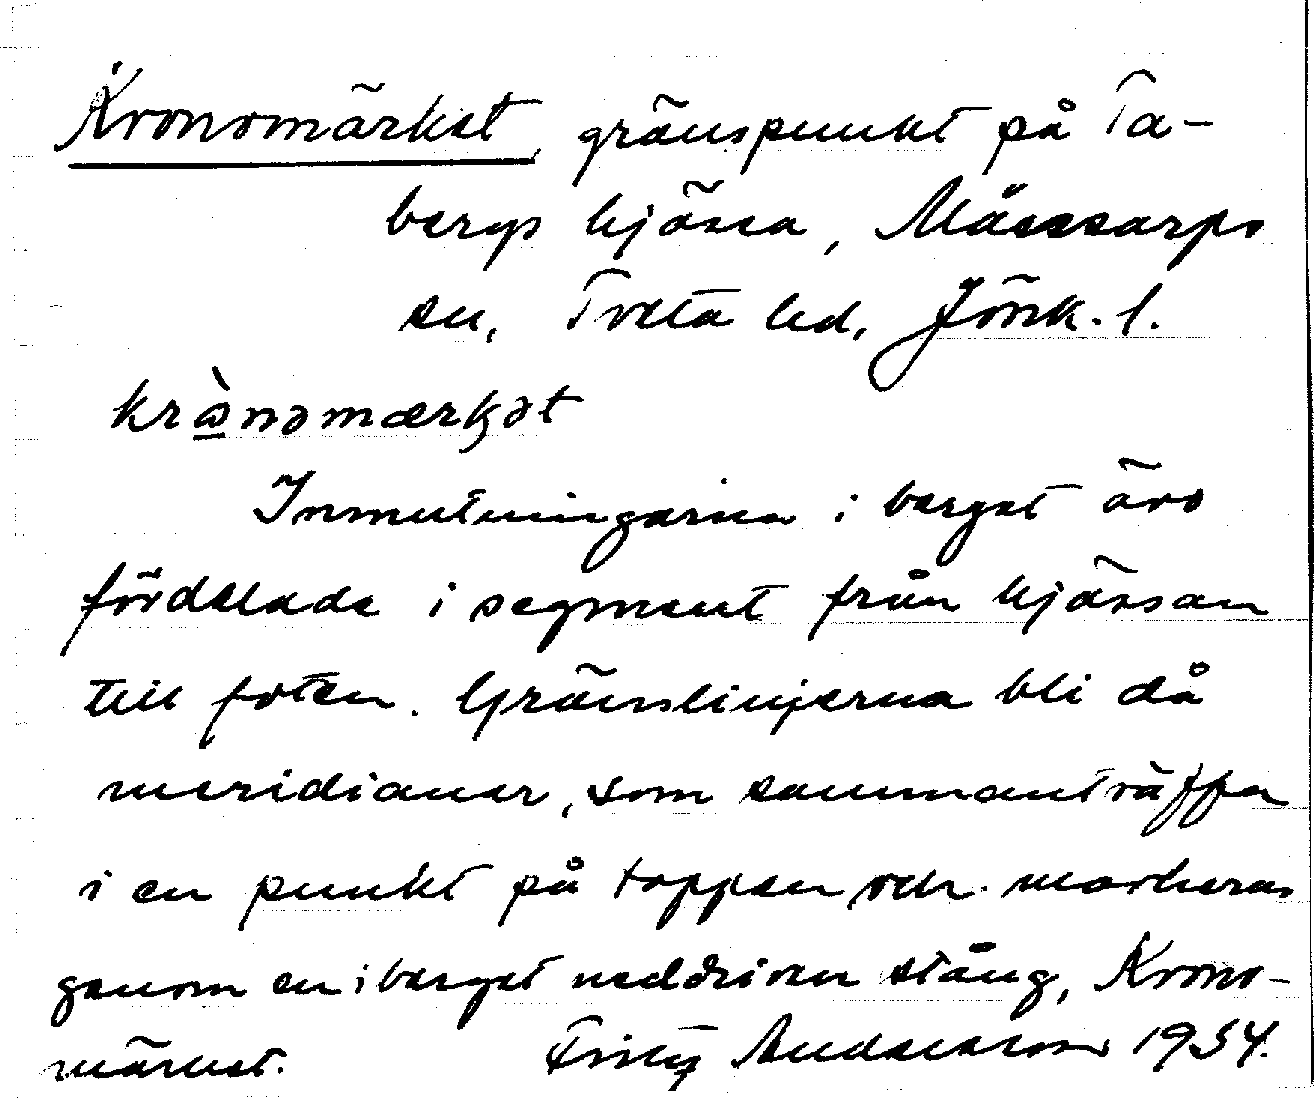 Kronomärket, gränspunkt på Ta-
bergs hjässa, Månsarps
sn, Tveta hd, Jönk. l.
Inmutningarna i berget äro
fördelade i segment från hjässan
till foten. Gränslinjerna bli då
meridianer, som sammanträffa
i en punkt på toppen och markeras
genom en i berget neddriven stång, Krono-
märket. Fritz Andersson 1934.